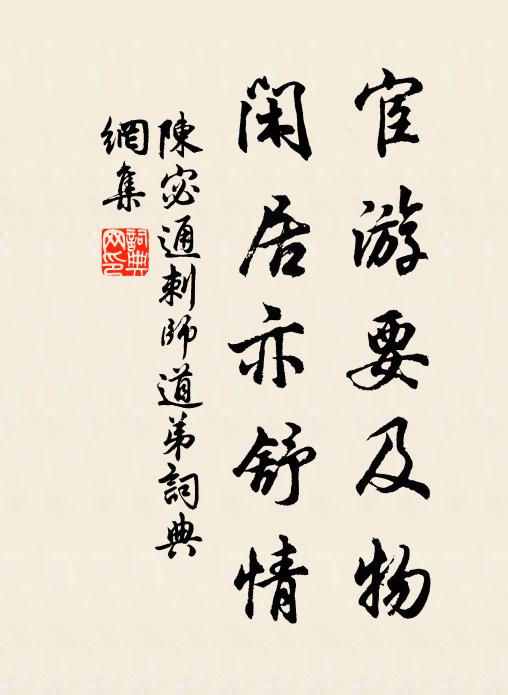 宦游要及物
閑居亦舒情
陳宓通刺師道弟詞典
網集
詞典
网印